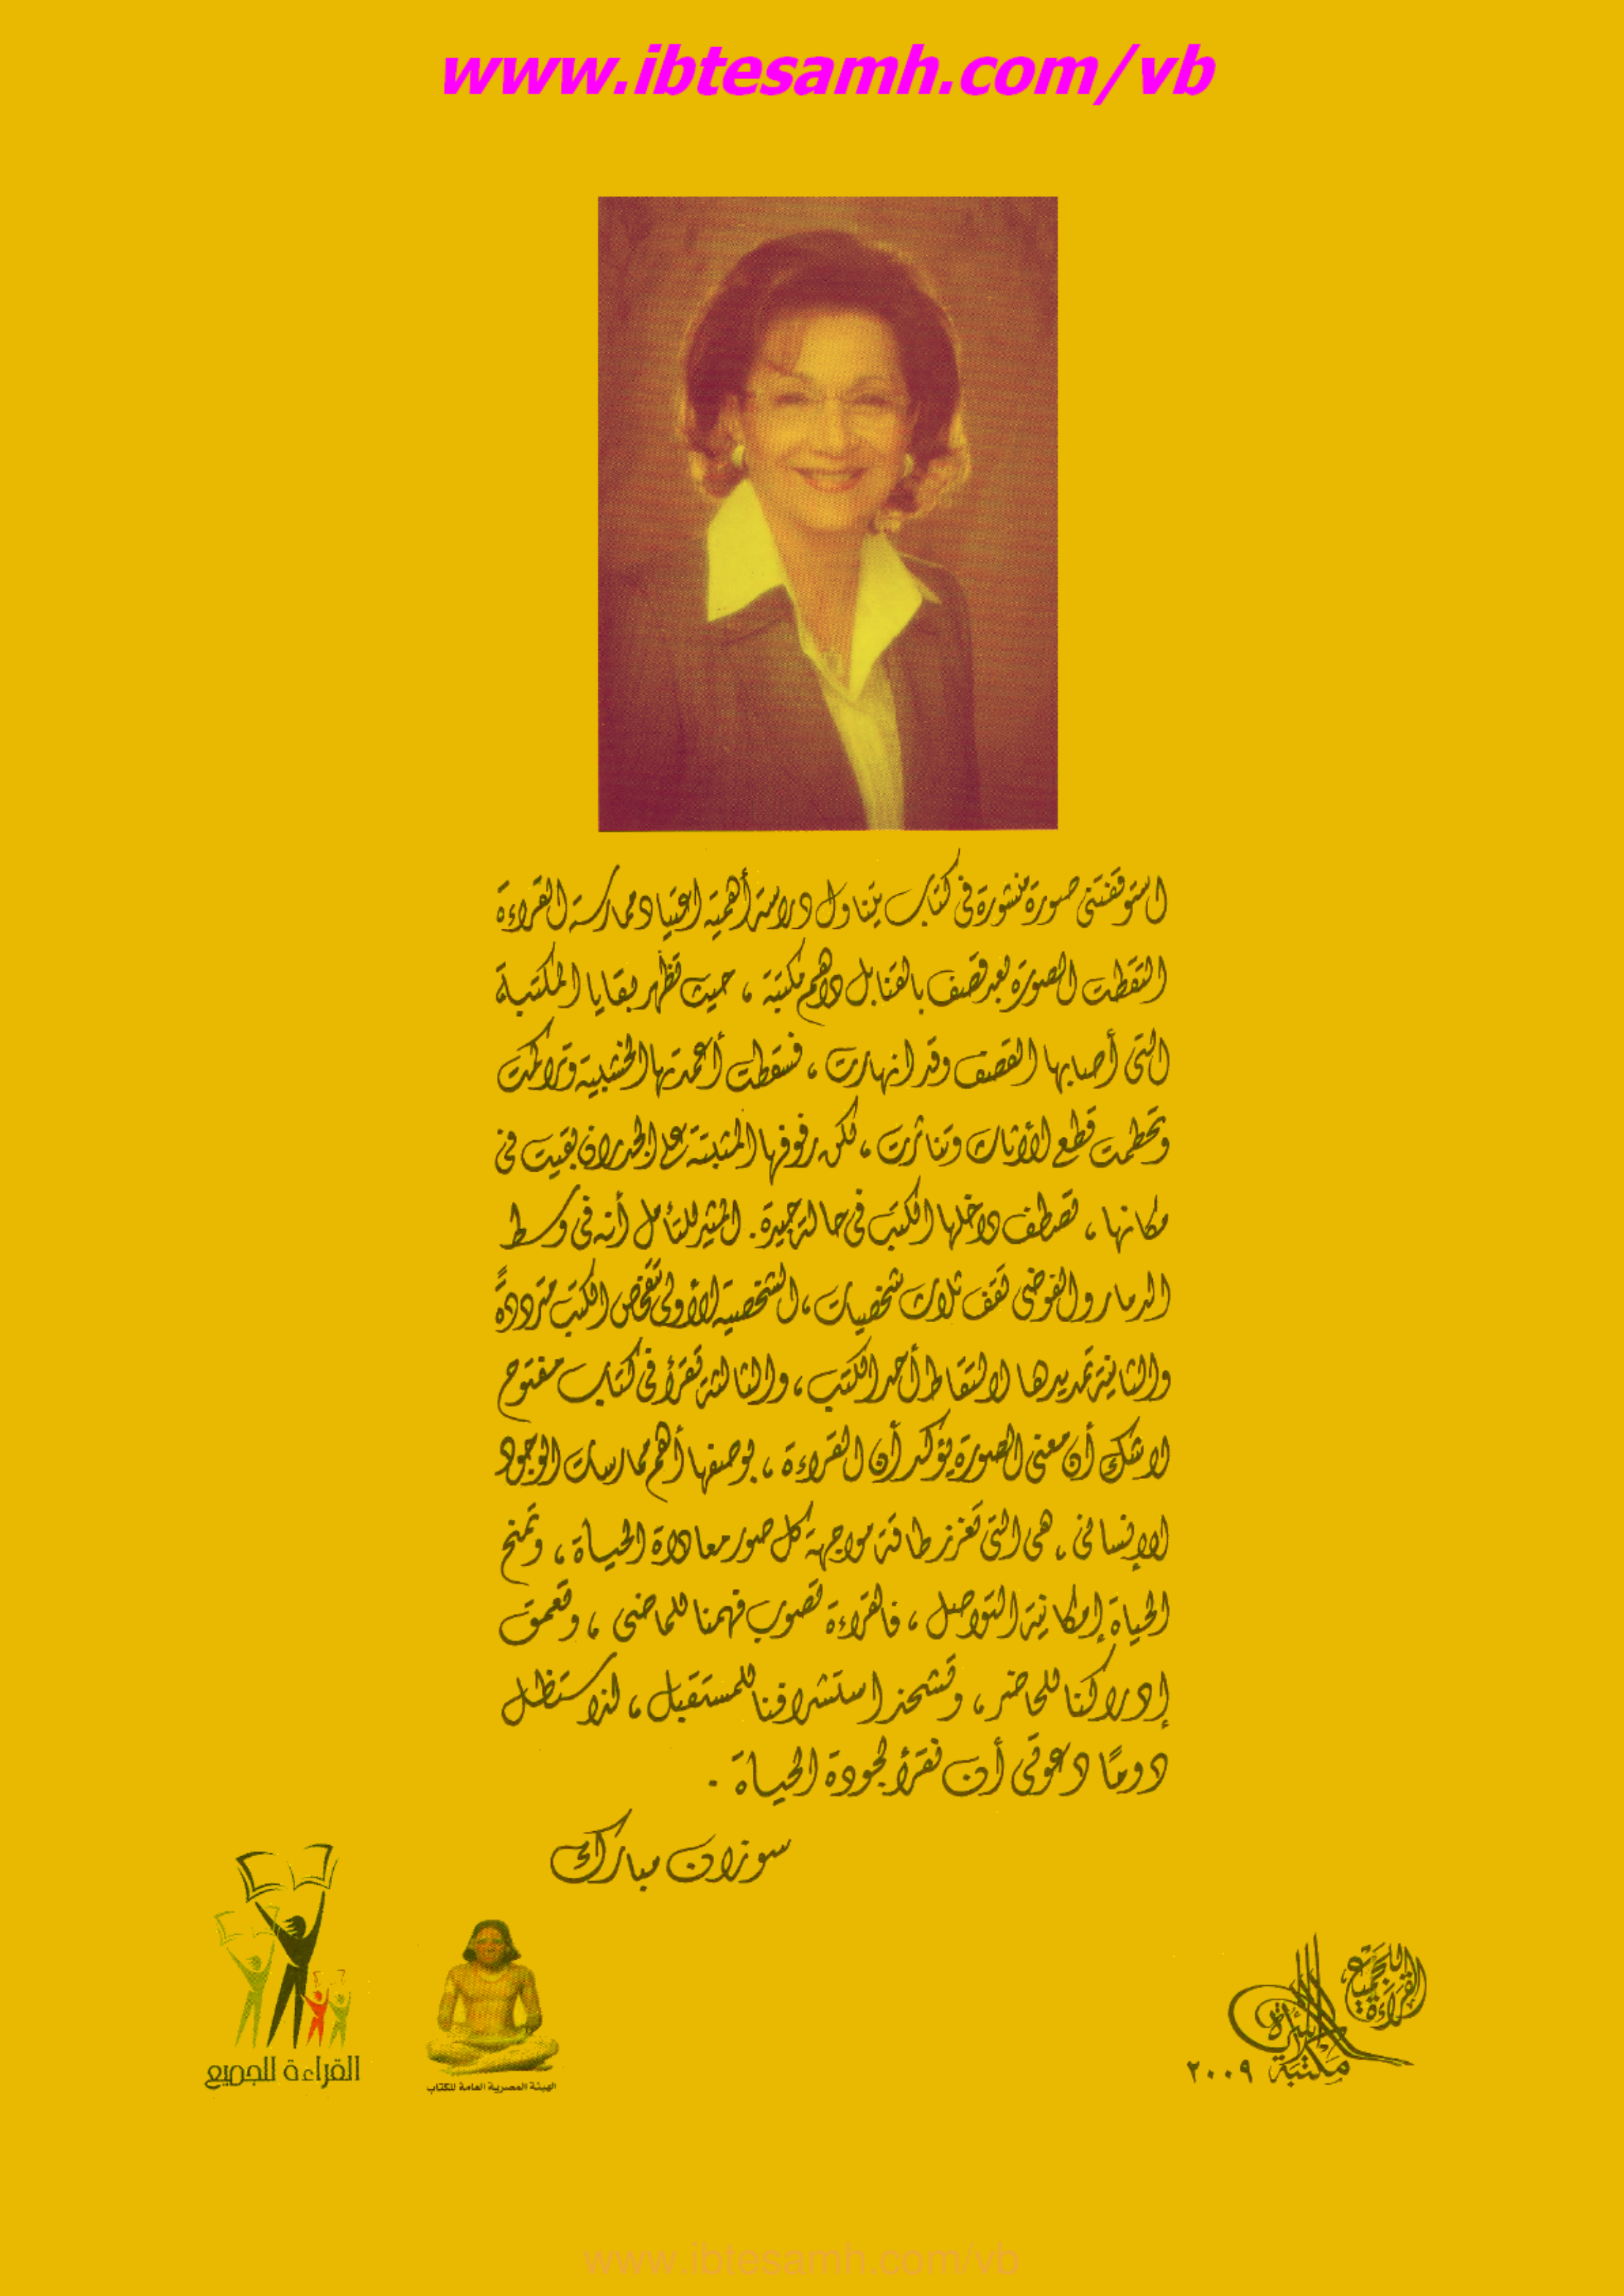 www.ibtesamh.com/vb
استوقفتنى صورة منشورة فى كتاب يتناول دراسة أهمية اعتياد ممارسة القراءة
التقطت الصورة بعد قصف بالقنابل داهم مكتبة ، حيث تظهر بقايا المكتبة
التى أصابها القصف وقد انهارت ، فسقطت أعمدتها الخشبية وتراكمت
وتحطمت قطع الأثاث وتناثرت ، لكن رفوفها المثبتة على الجدران بقيت فى
مكانها ، تصطف داخلها الكتب فى حالة جيدة . المثير للتأمل أنه فى وسط
الدمار والفوضى تقف ثلاث شخصيات ، الشخصية الأولى تتفحص الكتب مترددة
والثانية تمد يدها لالتقاط أحد الكتب ، والثالثة تقرأ فى كتاب مفتوح
لاشك أن معنى الصورة يؤكد أن القراءة ، بوصفها أهم ممارسات الوجود
الإنسانى ، هى التى تعزز طاقة مواجهة كل صور معاداة الحياة ، وتمنح
الحياة إمكانية التواصل ، فالقراءة تصوب فهمنا للماضى ، وتعمق
إدراكنا للحاضر ، وتشحذ استشرافنا للمستقبل ، لذا ستظل
دومًا دعوتى أن نقرأ لجودة الحياة .
سوزان مبارك
القراءة للجميع
الهيئة المصرية العامة للكتاب
القراءة للجميع
مكتبة الأسرة
٢٠٠٩
www.ibtesamh.com/vb